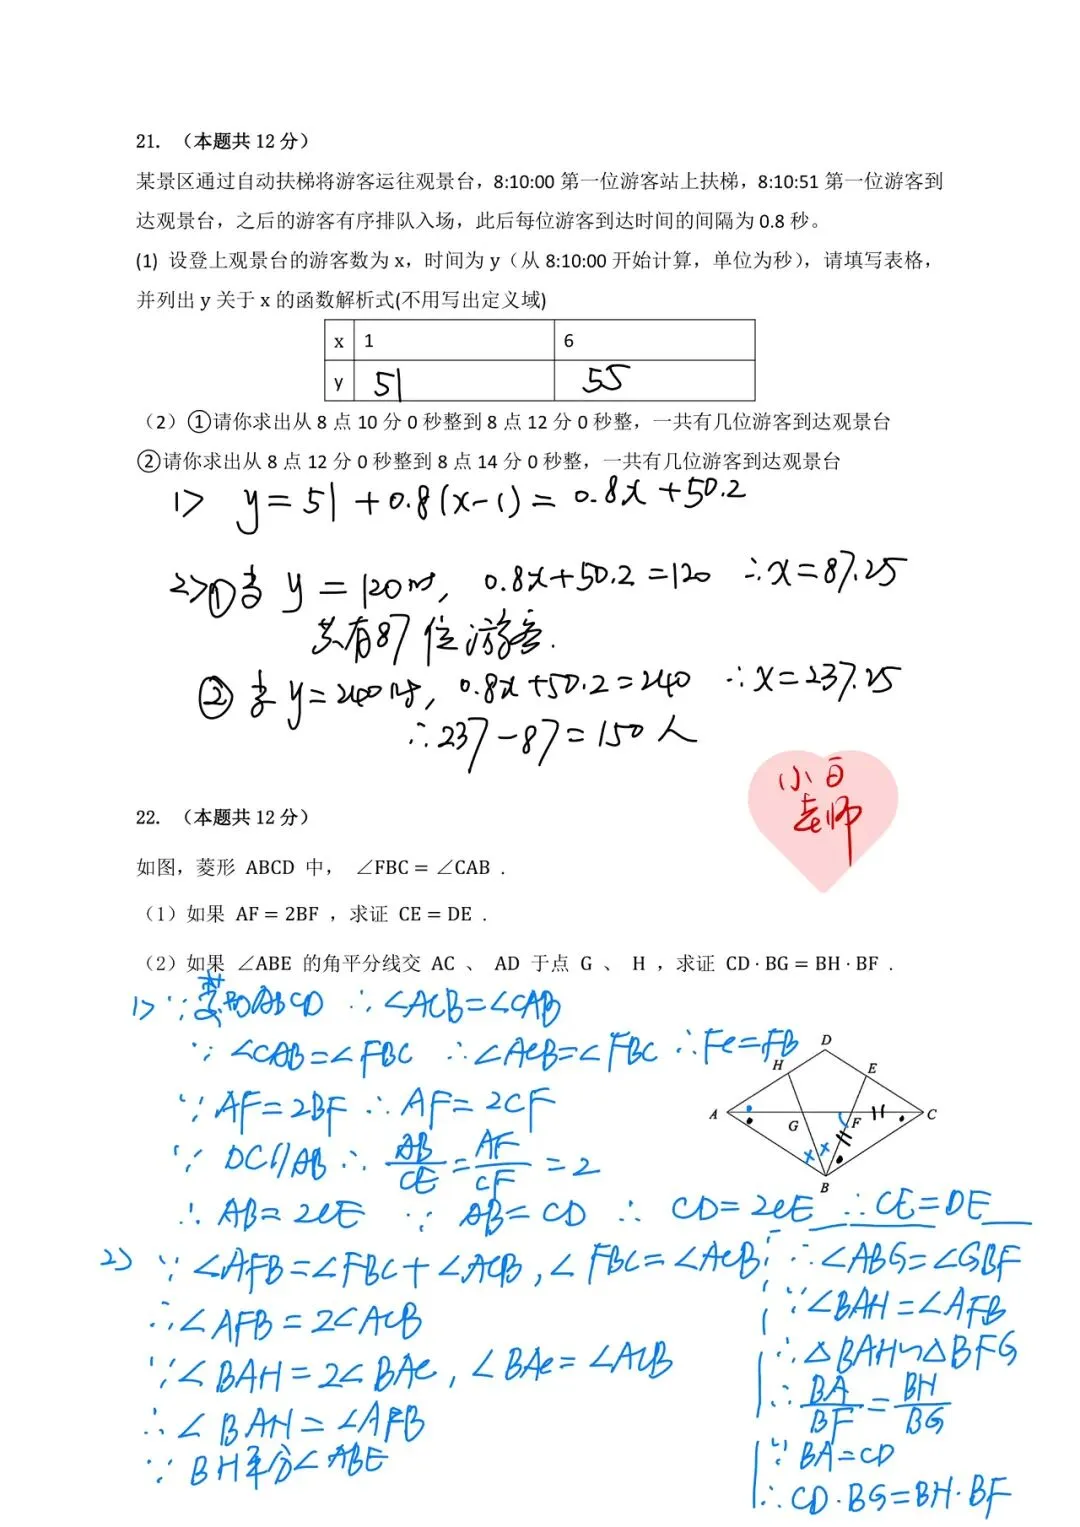 21. （本题共 12 分）
某景区通过自动扶梯将游客运往观景台，8:10:00 第一位游客站上扶梯，8:10:51 第一位游客到
达观景台，之后的游客有序排队入场，此后每位游客到达时间的间隔为 0.8 秒。
(1) 设登上观景台的游客数为 x，时间为 y（从 8:10:00 开始计算，单位为秒），请填写表格，
并列出 y 关于 x 的函数解析式(不用写出定义域)
x 1 6
y 51 55
（2）①请你求出从 8 点 10 分 0 秒整到 8 点 12 分 0 秒整，一共有几位游客到达观景台
②请你求出从 8 点 12 分 0 秒整到 8 点 14 分 0 秒整，一共有几位游客到达观景台
1> y=51+0.8(x-1)=0.8x+50.2
2>①当 y=120时, 0.8x+50.2=120 ∴x=87.25
共有87位游客.
②当 y=240时, 0.8x+50.2=240 ∴x=237.25
∴237-87=150人
小百
老师
22. （本题共 12 分）
如图，菱形 ABCD 中， ∠FBC = ∠CAB .
（1）如果 AF = 2BF ，求证 CE = DE .
（2）如果 ∠ABE 的角平分线交 AC 、 AD 于点 G 、 H ，求证 CD · BG = BH · BF .
1> ∵菱形ABCD ∴∠ACB=∠CAB
∵∠CAB=∠FBC ∴∠ACB=∠FBC ∴FC=FB
∵AF=2BF ∴AF=2CF
∵DC//AB ∴AB/CE=AF/CF=2
∴AB=2CE ∵AB=CD ∴CD=2CE ∴CE=DE
D
H
E
A
G
F
C
B
2> ∵∠AFB=∠FBC+∠ACB,∠FBC=∠ACB
∴∠AFB=2∠ACB
∵∠BAH=2∠BAC,∠BAC=∠ACB
∴∠BAH=∠AFB
∵BH平分∠ABE
∴∠ABG=∠GBF
∵∠BAH=∠AFB
∴△BAH∽△BFG
∴BA/BF=BH/BG
∵BA=CD
∴CD·BG=BH·BF